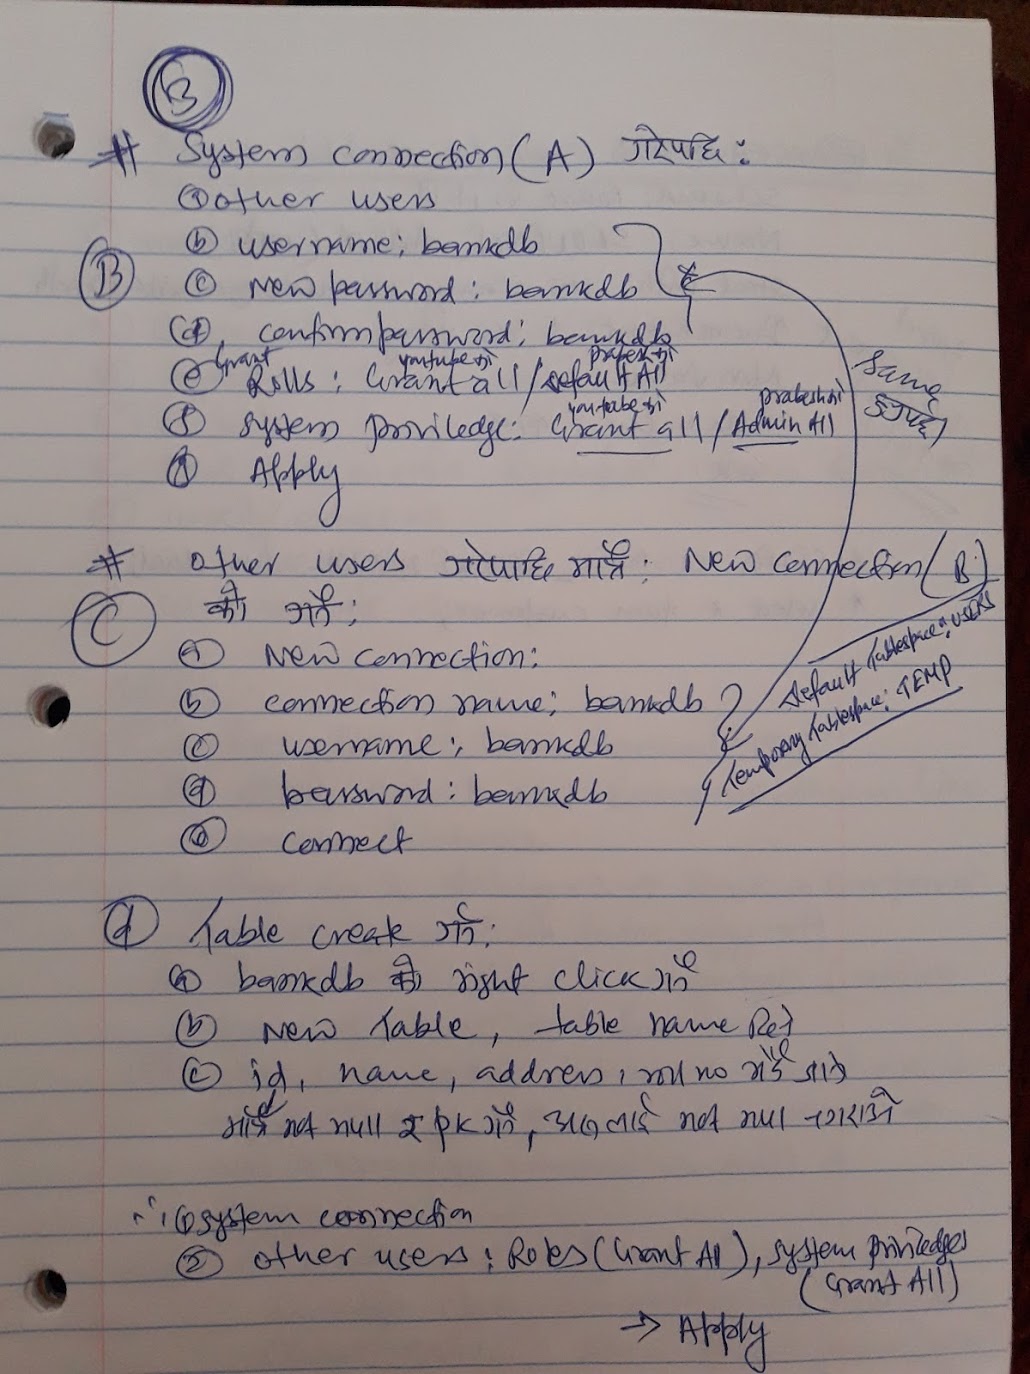 B
# System connection (A) गरेपछि:
ⓐ other users
B
ⓑ username: bankdb
ⓒ New password: bankdb
ⓓ confirm password: bankdb
Grant youtube मा prabesh मा
ⓔ Rolls: Grant all / Default All
youtube मा prabesh मा
ⓕ System priviledge: Grant all / Admin All
Apply
Same
# other users गरेपछि मात्रै: New connection (B)
C
को गर्ने:
ⓐ New connection:
ⓑ connection name: bankdb
ⓒ username: bankdb
ⓓ password: bankdb
ⓔ connect
Default Tablespace: USERS
Temporary Tablespace: TEMP
ⓓ Table create गर्ने:
ⓐ bankdb को right click गर्ने
ⓑ New Table, table name
ⓒ id, name, address, no
मात्रै not null र pk गर्ने, अरुलाई not null नगराउने
∴ ① system connection
② other users: Roles (Grant All), system priviledges
(Grant All)
→ Apply